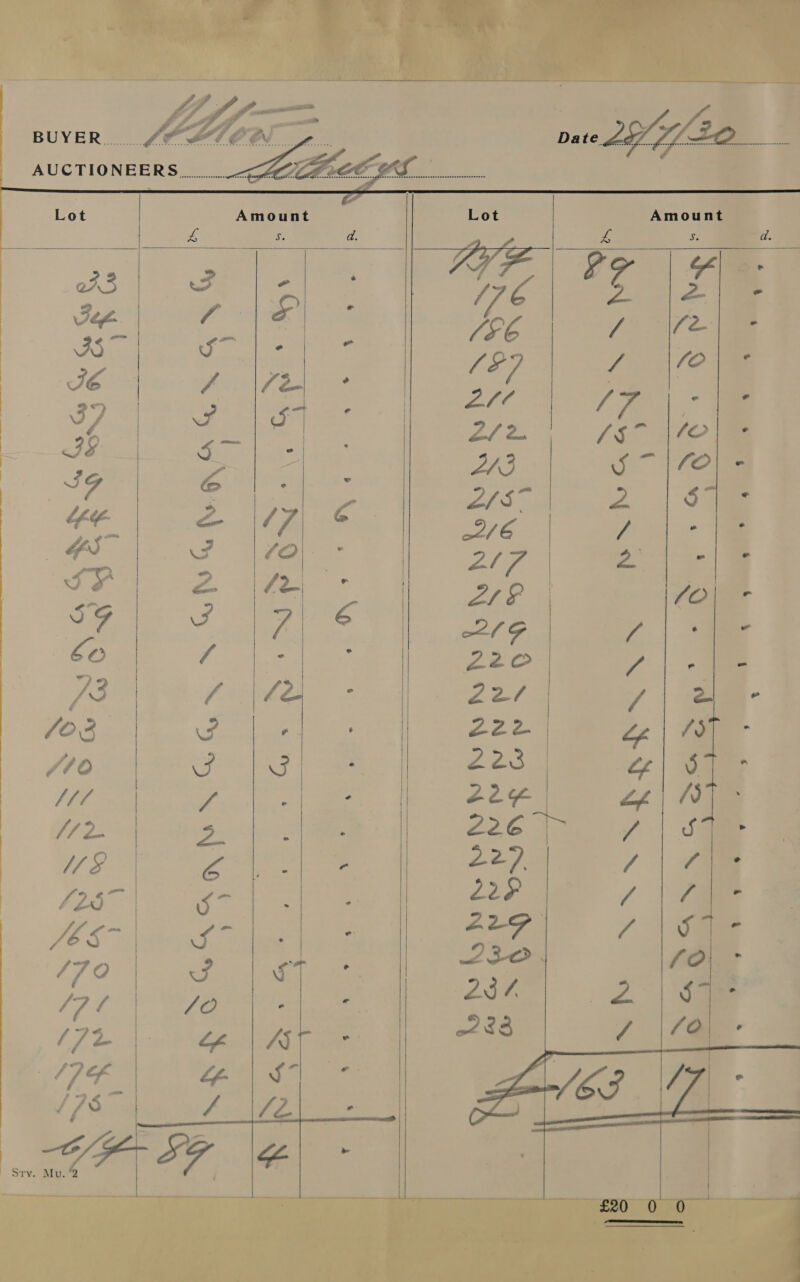 BUYER
Date 29/7/20
AUCTIONEERS
Lot Amount
£ s. d.
23 3 - -
34 1 8 -
35 5 - -
36 1 12 -
37 3 5 -
38 5 - -
39 6 - -
44 2 17 6
45 3 10 -
58 2 12 -
59 3 7 6
60 1 - -
73 1 12 -
103 3 - -
110 3 3 -
111 1 - -
112 2 - -
118 6 - -
125 5 - -
165 5 - -
170 3 5 -
171 10 - -
172 4 15 -
174 4 5 -
175 1 12 -
89 4 -
Sty. Mu. 2
Lot Amount
£ s. d.
89 4 -
176 2 2 -
186 1 12 -
187 1 10 -
211 17 - -
212 15 10 -
213 5 10 -
215 2 5 -
216 1 - -
217 2 - -
218 10 -
219 1 - -
220 1 - -
221 1 2 -
222 4 15 -
223 4 5 -
224 4 15 -
226 1 5 -
227 1 1 -
228 1 1 -
229 1 5 -
230 10 -
231 2 5 -
233 1 10 -
£163 17 -
£20 0 0